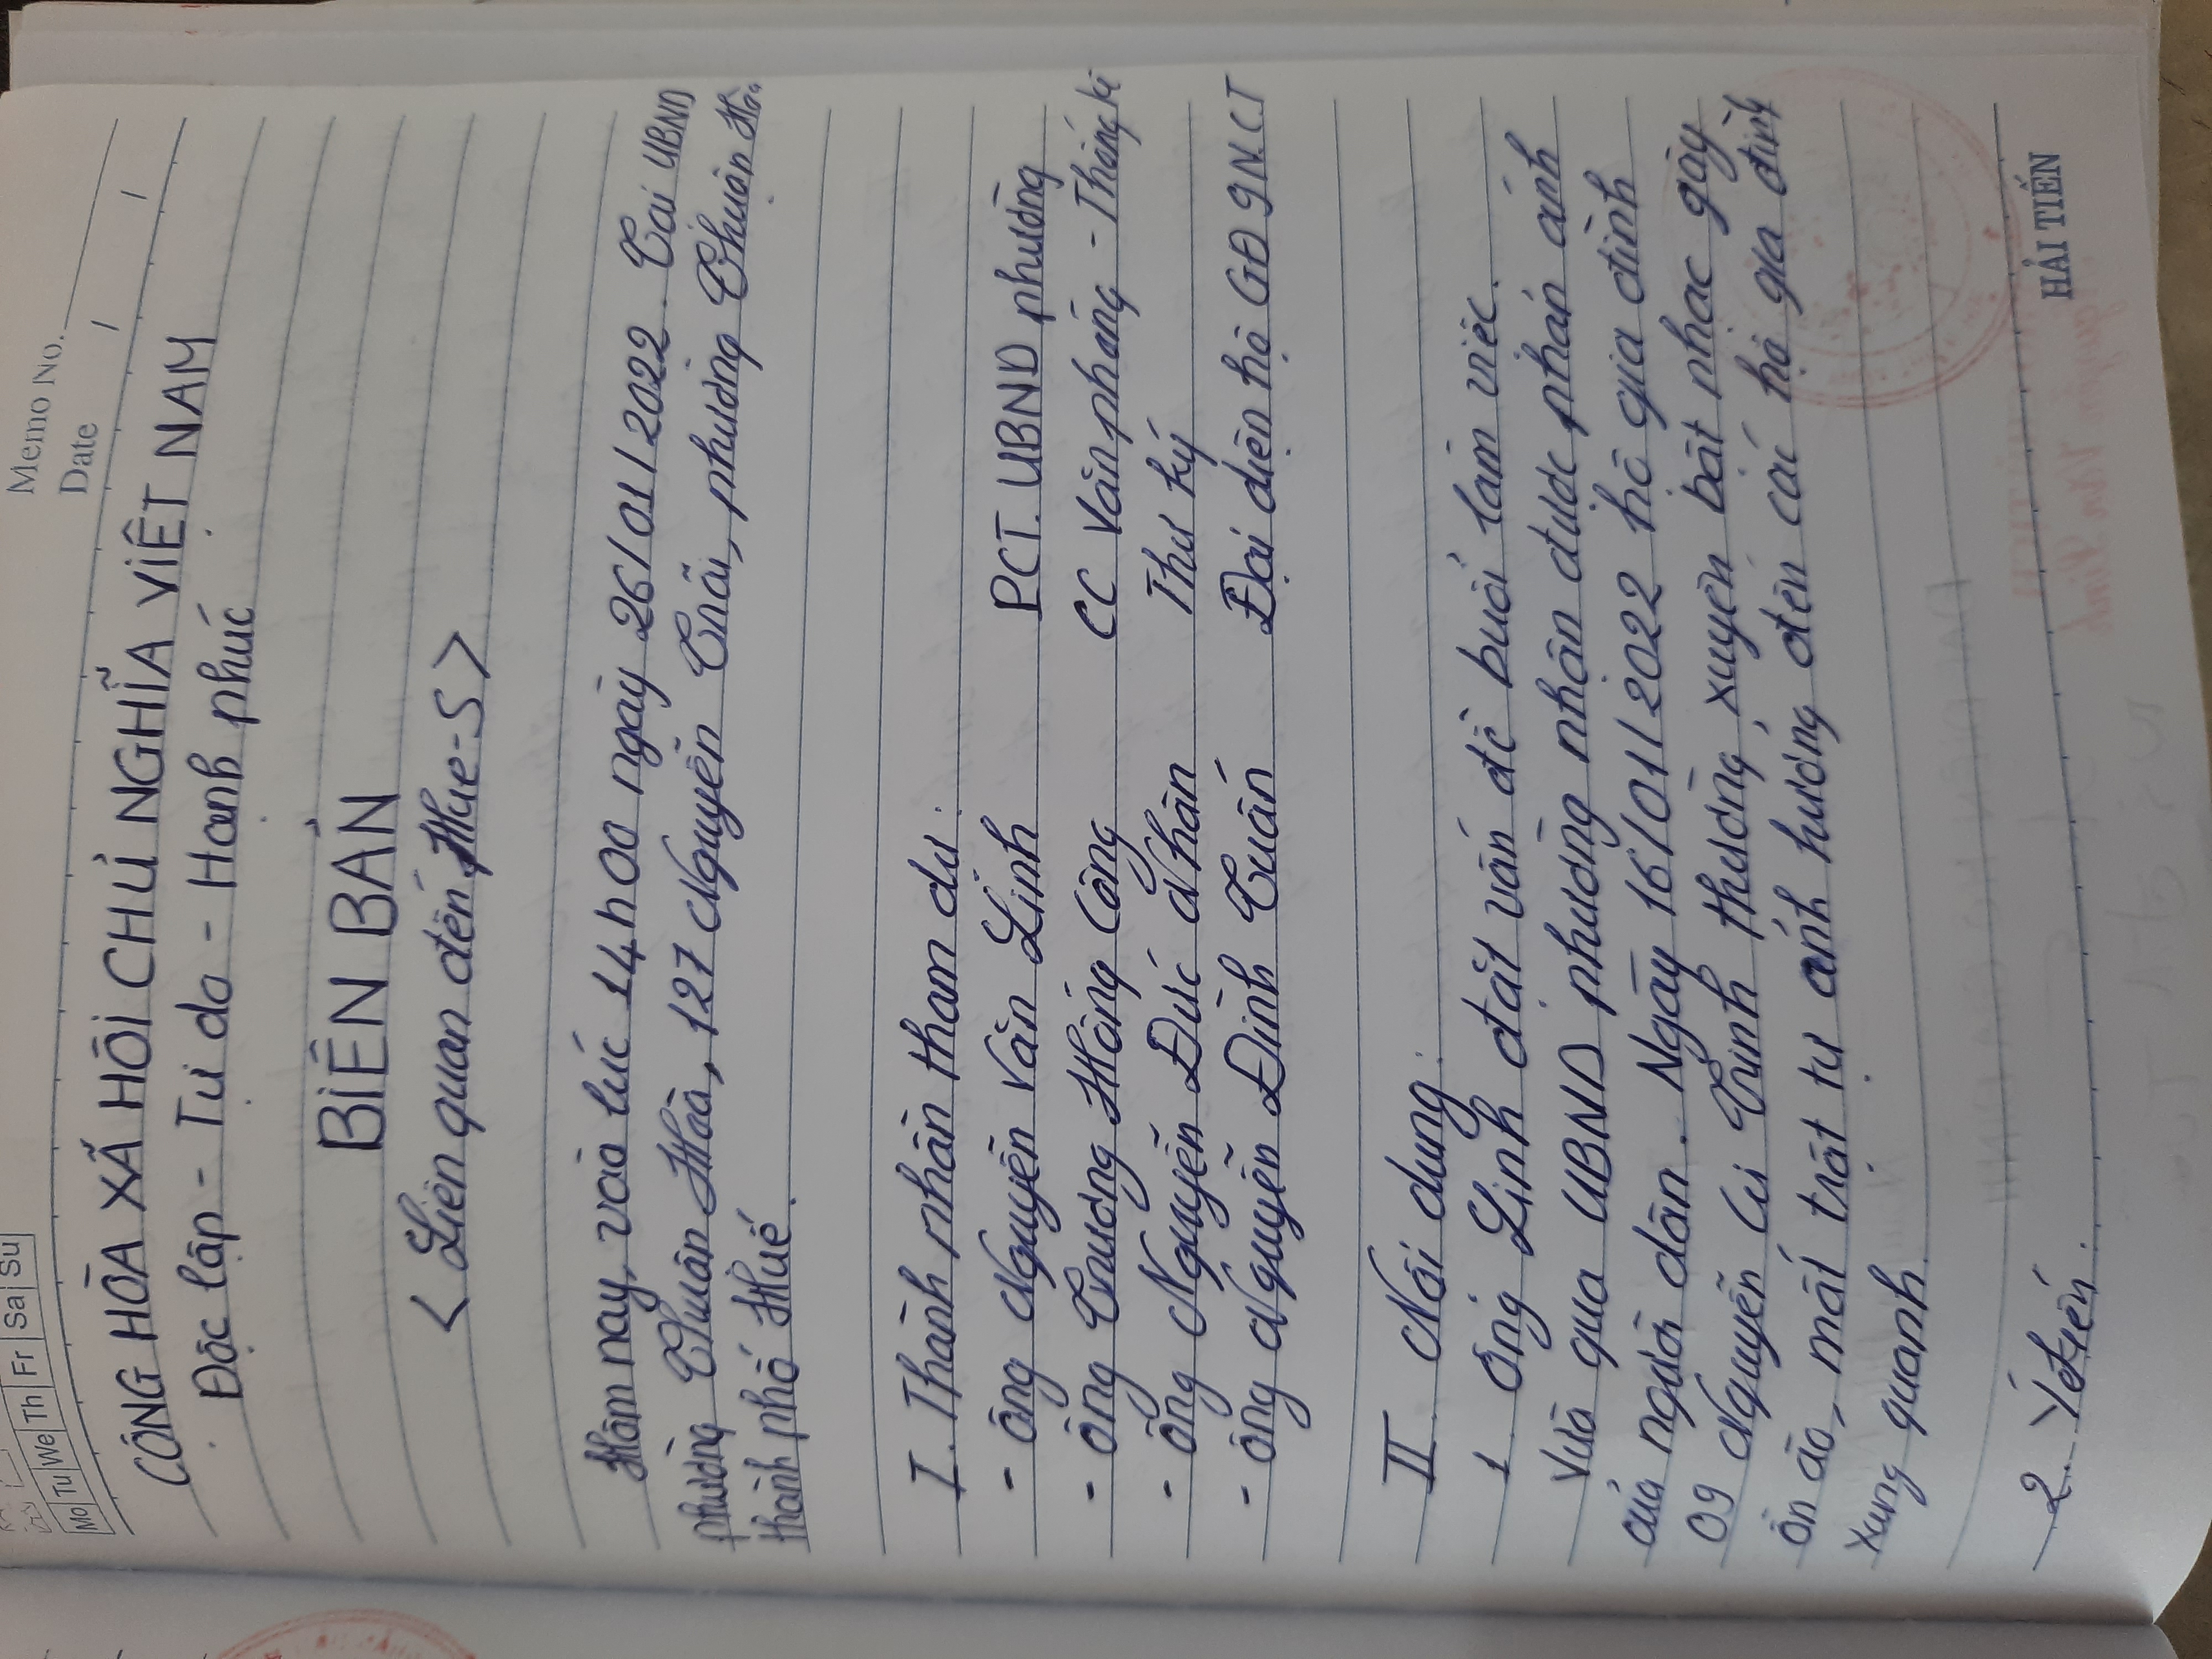 Mo Tu We Th Fr Sa Su
Memo No.
Date / /
CỘNG HÒA XÃ HỘI CHỦ NGHĨA VIỆT NAM
Độc lập - Tự do - Hạnh phúc
BIÊN BẢN
< Liên quan đến Hue-S >
Hôm nay, vào lúc 14h00 ngày 26/01/2022. Tại UBND
phường Thuận Hoà, 127 Nguyễn Trãi, phường Thuận Hòa
thành phố Huế.
I. Thành phần tham dự:
- ông Nguyễn Văn Linh PCT. UBND phường
- ông Trương Hồng Công CC Văn phòng - Thống kê
- ông Nguyễn Đức Nhân Thư ký
- ông Nguyễn Đình Tuấn Đại diện hộ GĐ 9 N.C.T
II. Nội dung:
1 Ông Linh đặt vấn đề buổi làm việc.
Vừa qua UBND phường nhận được phản ánh
của người dân. Ngày 16/01/2022 hộ gia đình
09 Nguyễn Cư Trinh thường xuyên bật nhạc gây
ồn ào, mất trật tự ảnh hưởng đến các hộ gia đình
xung quanh.
2. Ý kiến:
HẢI TIẾN